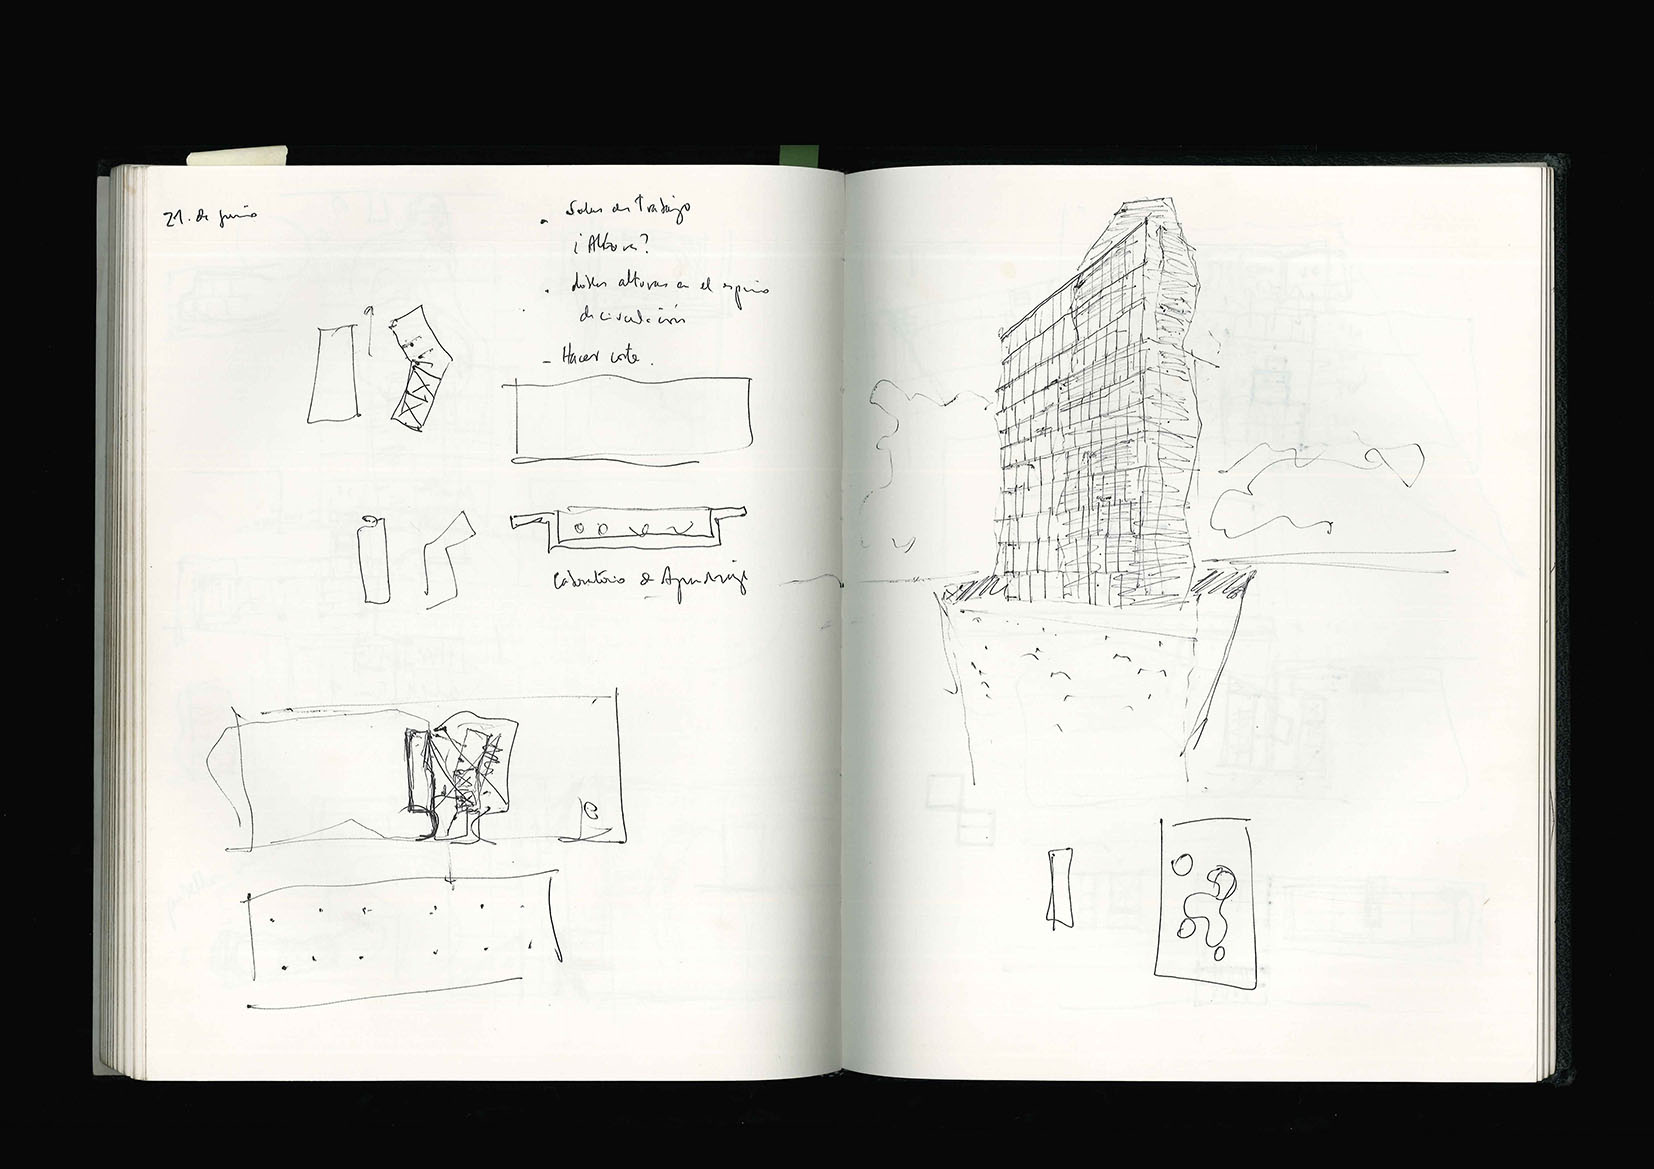 21. de junio
. Salas de Trabajo
¿Altura?
. dobles alturas en el espacio
de circulación
- Hacer corte.
Laboratorio de Aprendizaje